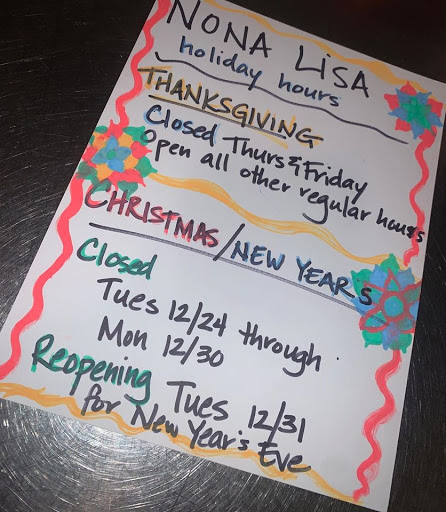 NONA LiSA
holiday hours
THANKSGIVING
Closed Thurs & Friday
Open all other regular hours
CHRISTMAS/NEW YEARS
Closed
Tues 12/24 through
Mon 12/30
Reopening Tues 12/31
for New Year's Eve